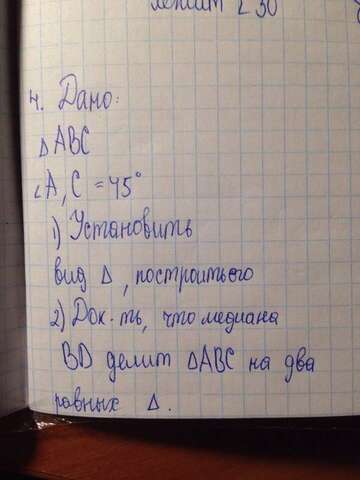 лежит ∠30
4. Дано:
△ABC
∠A, C = 45°
1) Установить
вид △, построить его
2) Док-ть, что медиана
BD делит △ABC на два
равных △.